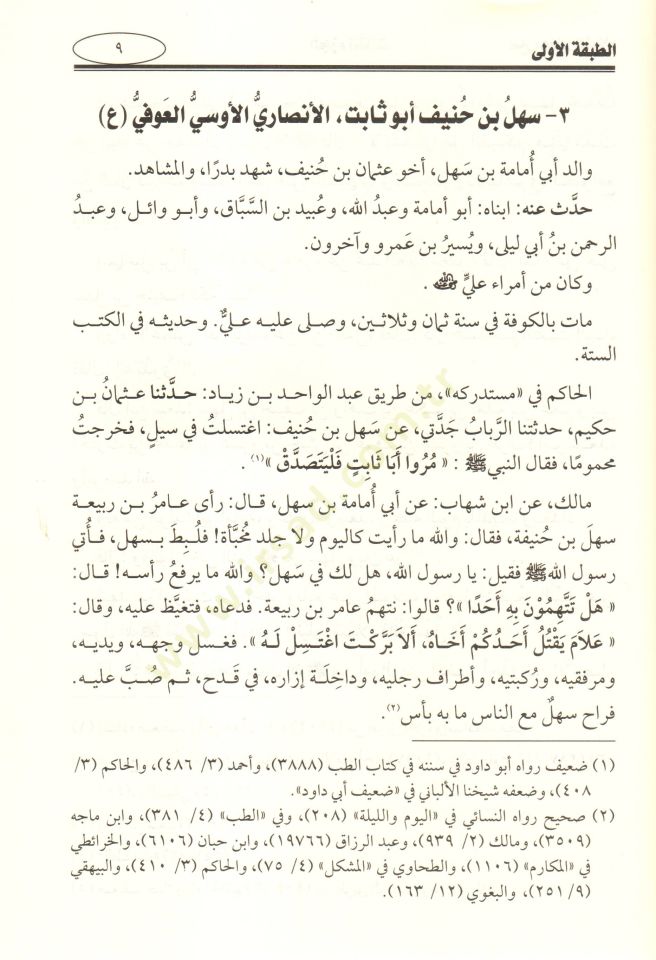 الطبقة الأولى
٩
٣- سهلُ بن حُنيف أبو ثابت، الأنصاريُّ الأوسيُّ العَوفيُّ (ع)
والد أبي أُمامة بن سَهل، أخو عثمان بن حُنيف، شهد بدرًا، والمشاهد.
حدَّث عنه: ابناه: أبو أمامة وعبدُ الله، وعُبيد بن السَّبَّاق، وأبو وائل، وعبدُ
الرحمن بنُ أبي ليلى، ويُسيرُ بن عَمرو وآخرون.
وكان من أمراء عليٍّ .
مات بالكوفة في سنة ثمان وثلاثين، وصلى عليه عليٌّ. وحديثه في الكتب
الستة.
الحاكم في «مستدركه»، من طريق عبد الواحد بن زياد: حدَّثنا عثمانُ بن
حكيم، حدثتنا الرَّبابُ جَدَّتي، عن سَهل بن حُنيف: اغتسلتُ في سيلٍ، فخرجتُ
محمومًا، فقال النبيﷺ : « مُرُوا أَبَا ثَابِتٍ فَلْيَتَصَدَّقْ »(١).
مالك، عن ابن شهاب: عن أبي أُمامة بن سهل، قال: رأى عامرُ بن ربيعة
سهلَ بن حُنيفة، فقال: والله ما رأيت كاليوم ولا جلد مُخبَّأة! فلُبِطَ بسهل، فأُتي
رسول اللهﷺ فقيل: يا رسول الله، هل لك في سَهل؟ والله ما يرفعُ رأسه! قال:
« هَلْ تَتَّهِمُوْنَ بِهِ أَحَدًا »؟ قالوا: نتهمُ عامر بن ربيعة. فدعاه، فتغيَّظ عليه، وقال:
« عَلاَمَ يَقْتُلُ أَحَدُكُمْ أَخَاهُ، أَلاَ بَرَّكْتَ اغْتَسِلْ لَهُ ». فغسل وجهه، ويديه،
ومرفقيه، ورُكبتيه، وأطراف رجليه، وداخِلَة إزاره، في قَدح، ثم صُبَّ عليه.
فراح سهلٌ مع الناس ما به بأس(٢).
(١) ضعيف رواه أبو داود في سننه في كتاب الطب (٣٨٨٨)، وأحمد (٣/ ٤٨٦)، والحاكم (٣/
٤٠٨)، وضعفه شيخنا الألباني في «ضعيف أبي داود».
(٢) صحيح رواه النسائي في «اليوم والليلة» (٢٠٨)، وفي «الطب» (٤/ ٣٨١)، وابن ماجه
(٣٥٠٩)، ومالك (٢/ ٩٣٩)، وعبد الرزاق (١٩٧٦٦)، وابن حبان (٦١٠٦)، والخرائطي
في «المكارم» (١١٠٦)، والطحاوي في «المشكل» (٤/ ٧٥)، والحاكم (٣/ ٤١٠)، والبيهقي
(٩/ ٢٥١)، والبغوي (١٢/ ١٦٣).